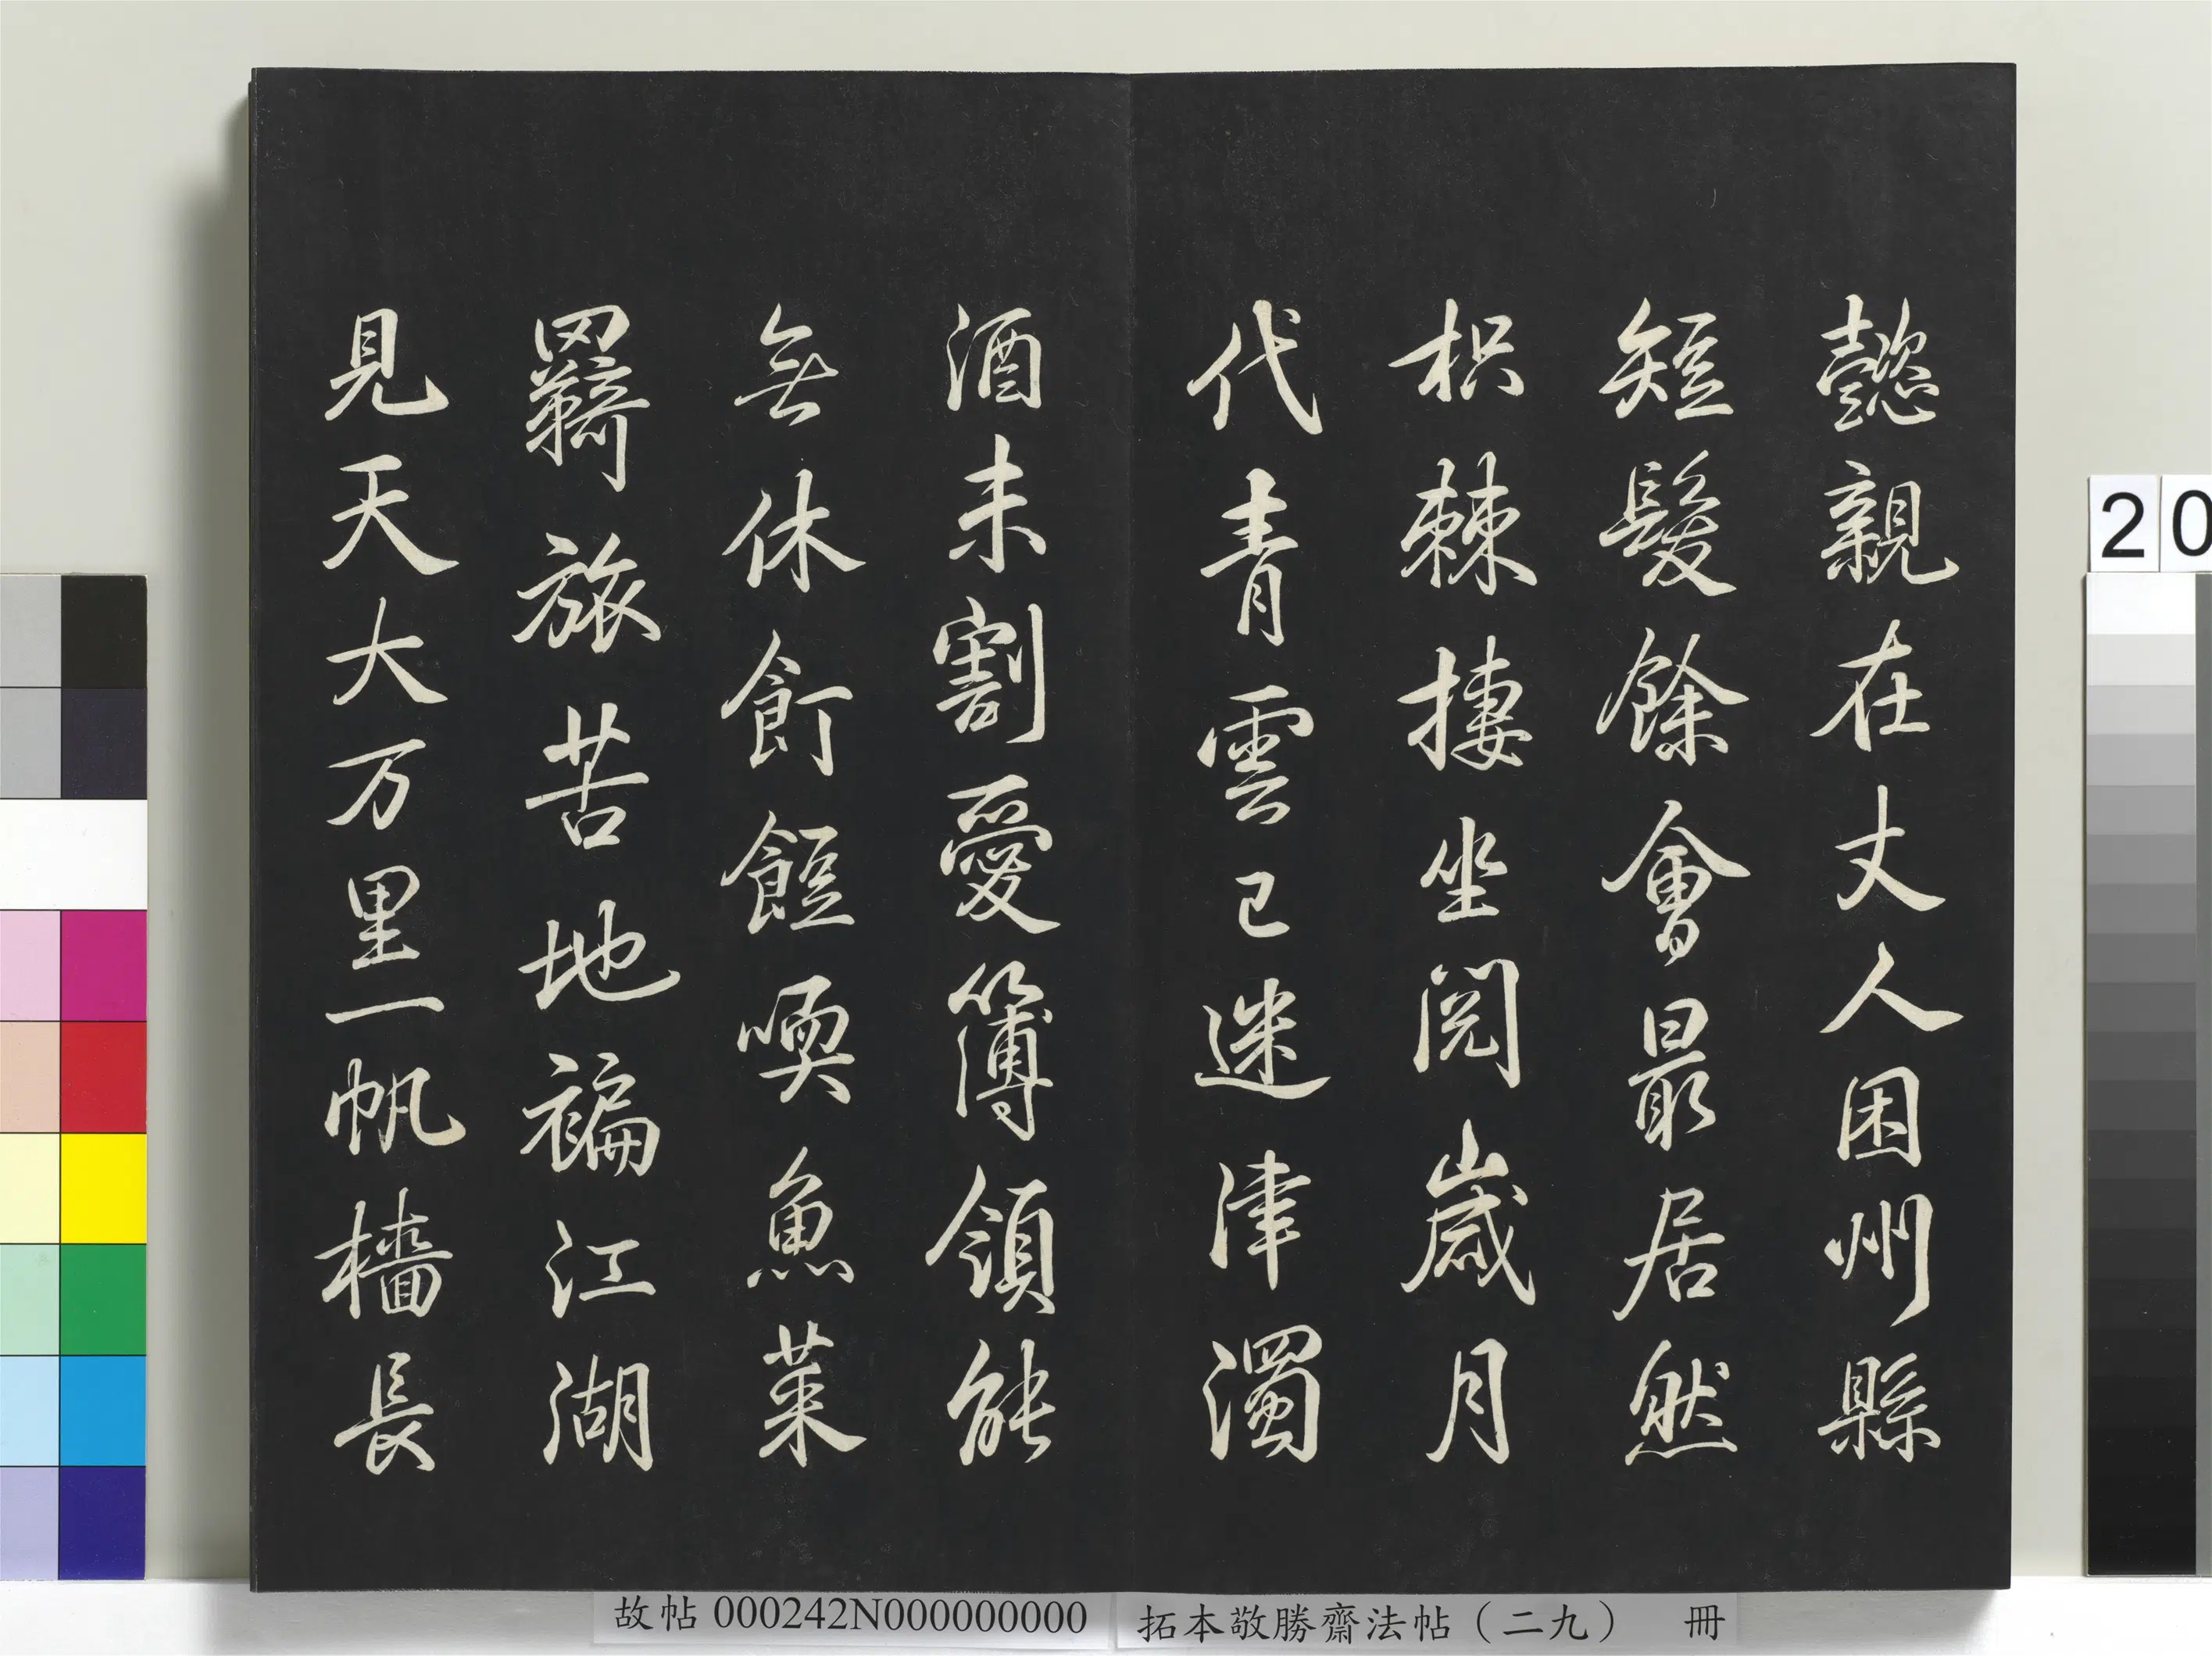 懿親在丈人困州縣
短髮餘會最居然
枳棘捿坐閱歲月
代青雲已迷津濁
酒未割愛簿領能
無休飣餖喚魚菜
羇旅苦地褊江湖
見天大万里一帆檣長
20
故帖 000242N000000000
拓本敬勝齋法帖（二九） 冊